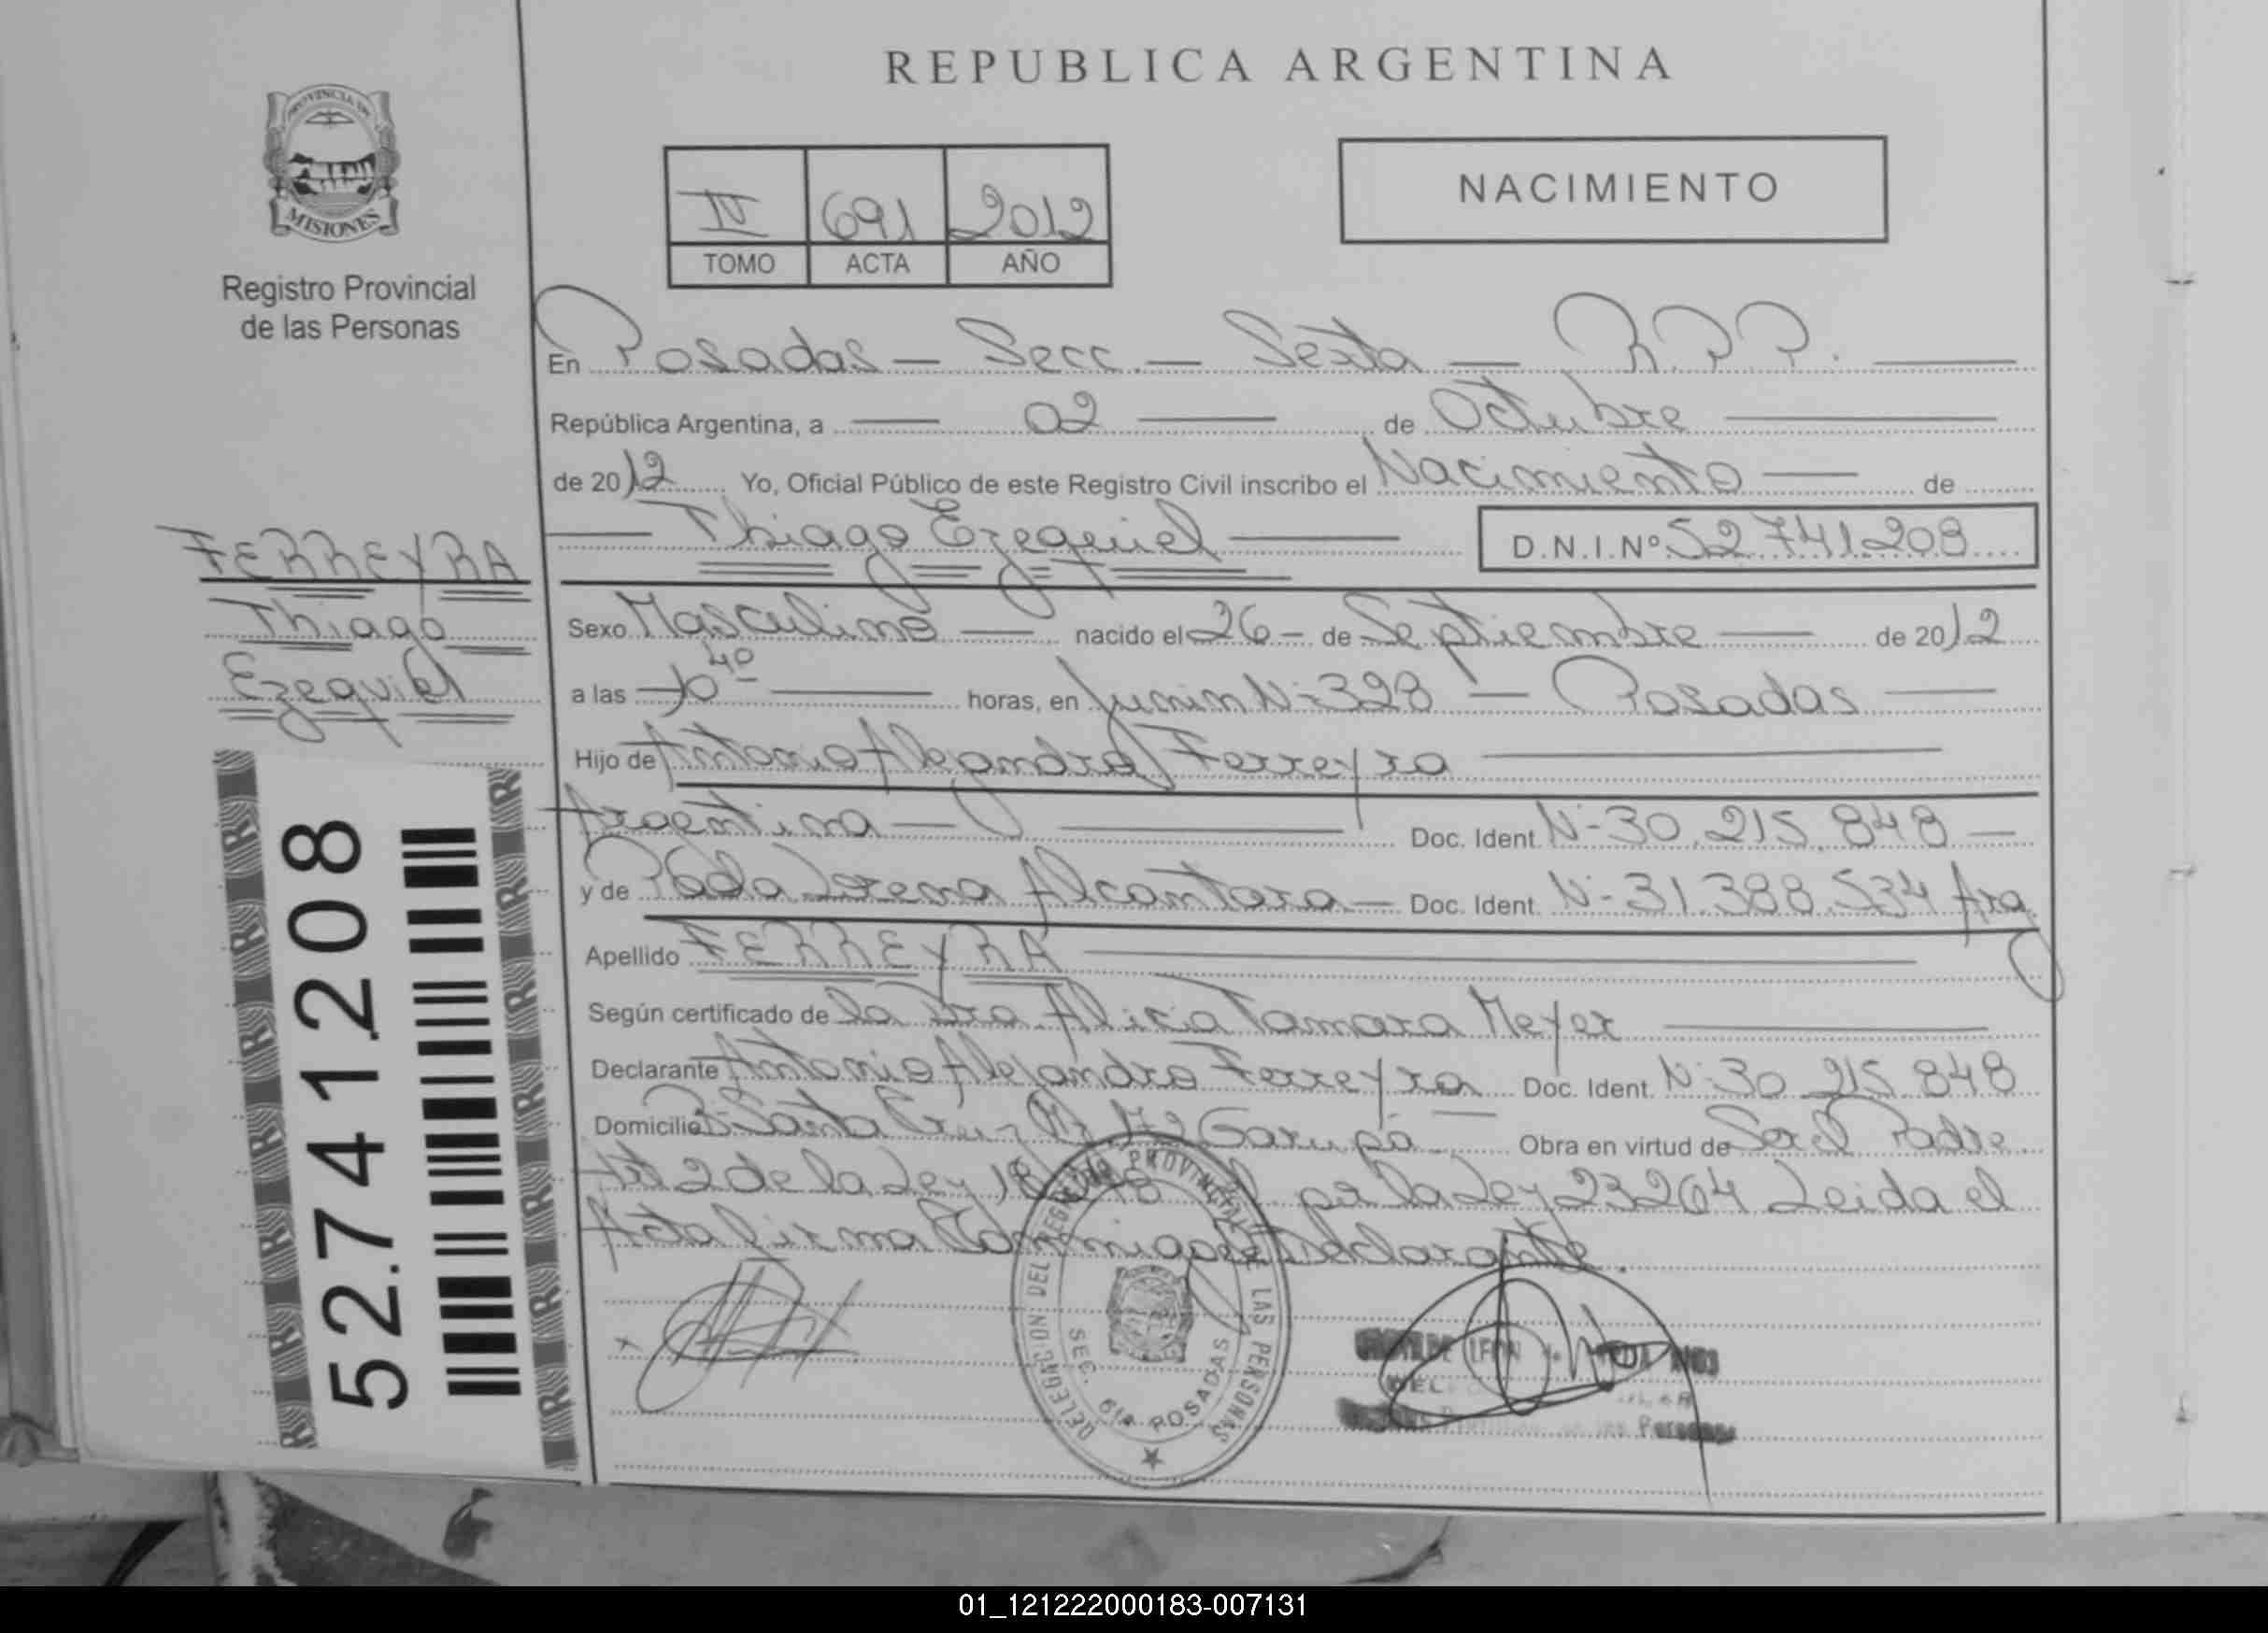 REPUBLICA ARGENTINA
PROVINCIA DE
MISIONES
Registro Provincial
de las Personas
IV 691 2012
TOMO ACTA AÑO
NACIMIENTO
En Posadas — Secc. — Sexta — R.P.P.
República Argentina, a — 02 — de Octubre
de 2012 Yo, Oficial Público de este Registro Civil inscribo el Nacimiento — de
— Thiago Ezequiel — D.N.I.Nº 52741208
FERREYRA
Thiago
Ezequiel
Sexo Masculino — nacido el 26 — de Septiembre — de 2012
a las 10 40 — horas, en Junin Nº 328 — Posadas
Hijo de Antonio Alejandro Ferreyra
Argentina — Doc. Ident. Nº 30.215.848 —
y de Lorena Alcantara — Doc. Ident. Nº 31.388.534 Arg
Apellido FERREYRA
Según certificado de la Dra Alicia Tamara Meyer
Declarante Antonio Alejandro Ferreyra Doc. Ident. Nº 30.215.848
Domicilio Bº Santa Garupá Obra en virtud de Ser el Padre
Art 2 de la Ley por la Ley 23264 Leida el
Acta firma Conmigo el Declarante.
52.741.208
DELEGACION DEL REGISTRO PROVINCIAL DE LAS PERSONAS
SEC. 6ta POSADAS
LEON
Personas
01_121222000183-007131